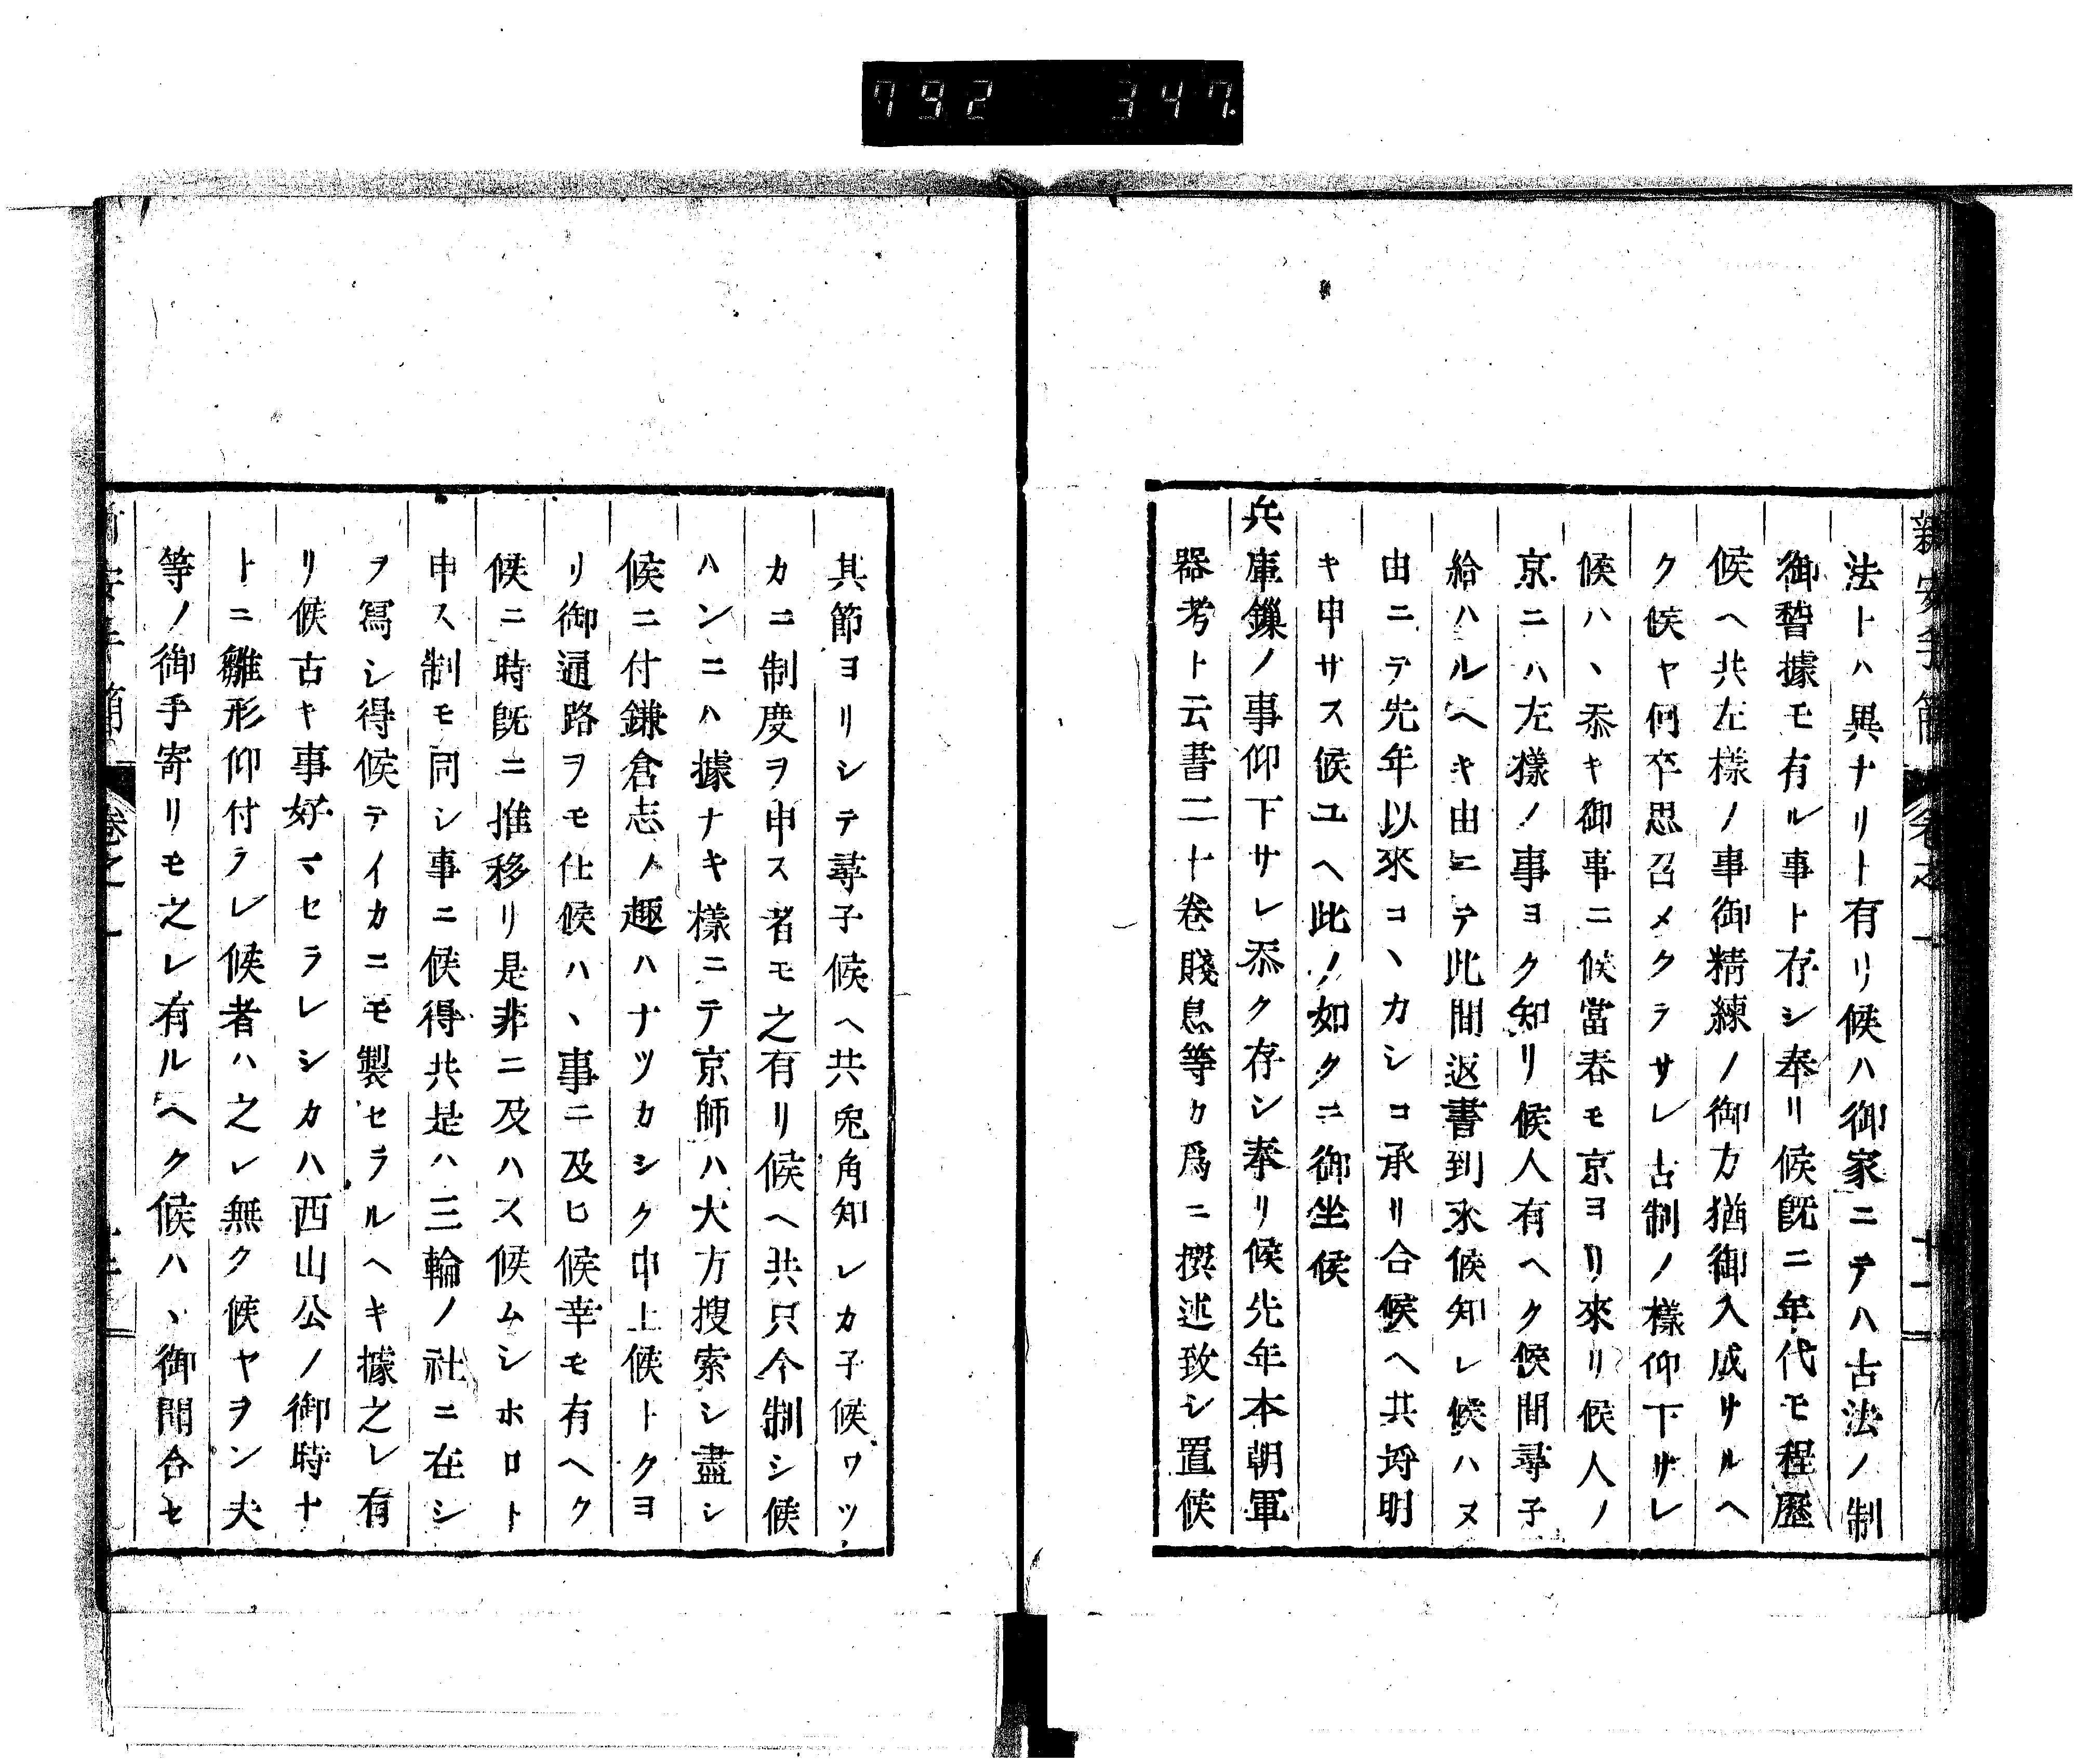 792 347
新安手簡 卷之一 十一
法トハ異ナリト有リ候ハ御家ニテハ古法ノ制
御證據モ有ル事ト存シ奉リ候既ニ年代モ程歷
候ヘ共左樣ノ事御精練ノ御方猶御入成サルヘ
ク候ヤ何卒思召メクラサレ古制ノ樣仰下サレ
候ハヽ忝キ御事ニ候當春モ京ヨリ來リ候人ノ
京ニハ左樣ノ事ヨク知リ候人有ヘク候間尋子
給ハルヘキ由ニテ此間返書到來候知レ候ハヌ
由ニテ先年以來コヽカシコ承リ合候ヘ共埒明
キ申サス候ユヘ此ノ如クニ御坐候
兵庫鏁ノ事仰下サレ忝ク存シ奉リ候先年本朝軍
器考ト云書二十卷賤息等カ爲ニ撰述致シ置候
其節ヨリシテ尋子候ヘ共兎角知レカ子候ワツ
カニ制度ヲ申ス者モ之有リ候ヘ共只今制シ候
ハンニハ據ナキ樣ニテ京師ハ大方搜索シ盡シ
候ニ付鎌倉志ノ趣ハナツカシク申上候トクヨ
リ御通路ヲモ仕候ハヽ事ニ及ヒ候幸モ有ヘク
候ニ時既ニ推移リ是非ニ及ハス候ムシホロト
申ス制モ同シ事ニ候得共是ハ三輪ノ社ニ在シ
ヲ寫シ得候テイカニモ製セラルヘキ據之レ有
リ候古キ事好マセラレシカハ西山公ノ御時ナ
トニ雛形仰付ラレ候者ハ之レ無ク候ヤヲン夫
等ノ御手寄リモ之レ有ルヘク候ハヽ御聞合セ
新安手簡 卷之一